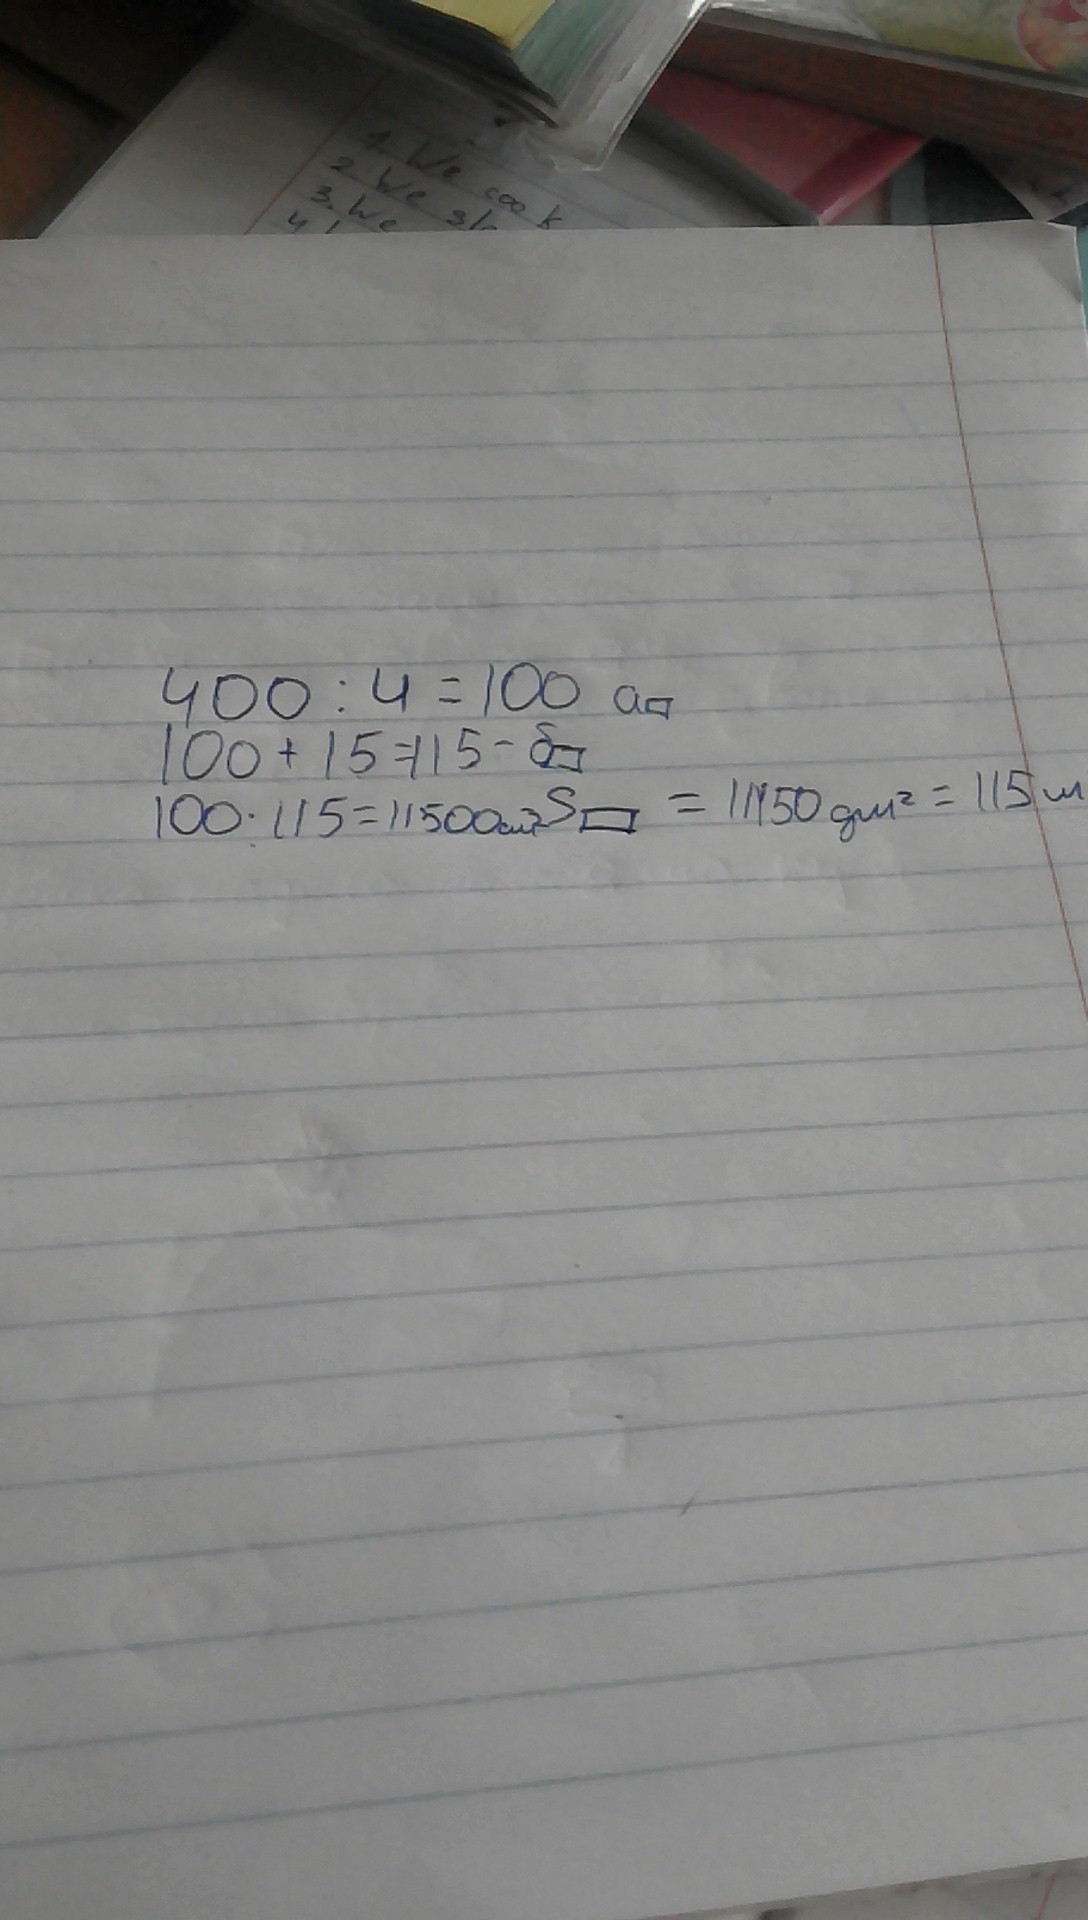 1. We cook
2. We
3. We
4
400 : 4 = 100 a▭
100 + 15 = 115 - б▭
100 · 115 = 11500см² S▭ = 11150 дм² = 115 м